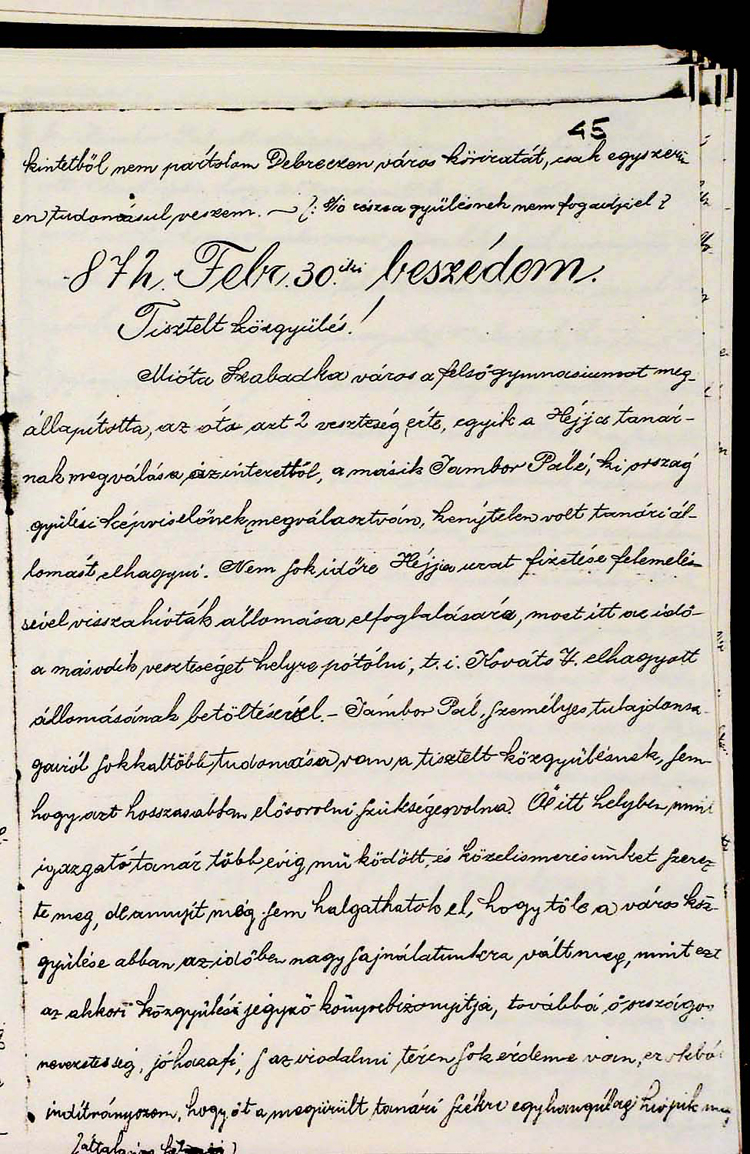 45
kintetből nem pártolom Debreczen város köriratát, csak egyszerü
en tudomásul veszem. — a gyülésnek nem fogadja el
872. Febr. 30.iki beszédem.
Tisztelt közgyülés!
Mióta Szabadka város a felsőgymnasiumot meg-
állapította, az óta azt 2 veszteség érte, egyik a Héjja tanár-
nak megválása az intézettől, a másik Jámbor Pálé, ki ország
gyülési képviselőnek megválasztván, kénytelen volt tanári ál-
lomást elhagyni. Nem sok időre Héjja urat fizetése felemelés-
sével visszahivták állomása elfoglalására, most itt az idő-
a második veszteséget helyre pótolni, t. i. Kováts elhagyott
állomásának betöltésével. — Jámbor Pál, személyes tulajdonsá-
gairól sokkal több tudomása van a tisztelt közgyülésnek, sem
hogy azt hosszasabban elősorolni szükséges volna. Ő itt helyben mint
igazgató tanár több évig müködött, és közelismerésünket szerez
te meg, de annyit még sem halgathatok el, hogy tőle a város köz-
gyülése abban az időben nagy sajnálatunkra vált meg, mint ezt
az akkori közgyülési jegyző könyve bizonyitja, továbbá ő országos
nevezetesség, jó hazafi, s az irodalmi téren sok érdeme van, ez okból
inditványozom, hogy őt a megürült tanári székre egyhangúlag hivjuk meg